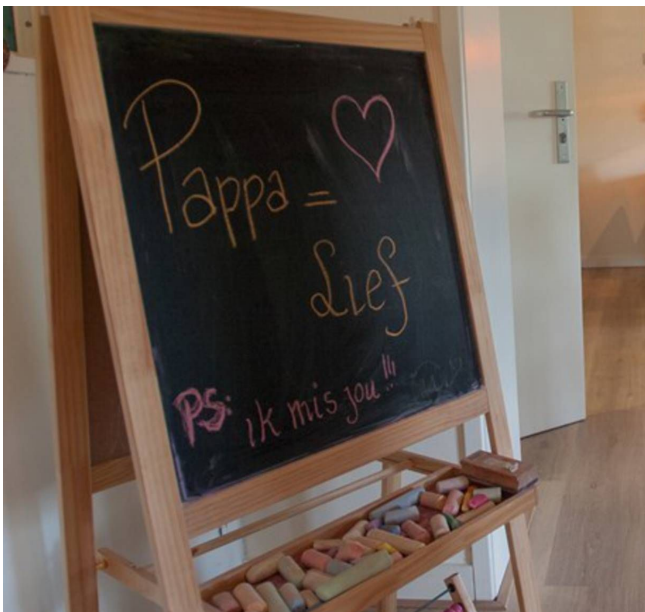 Pappa =
Lief
PS: ik mis jou!!!